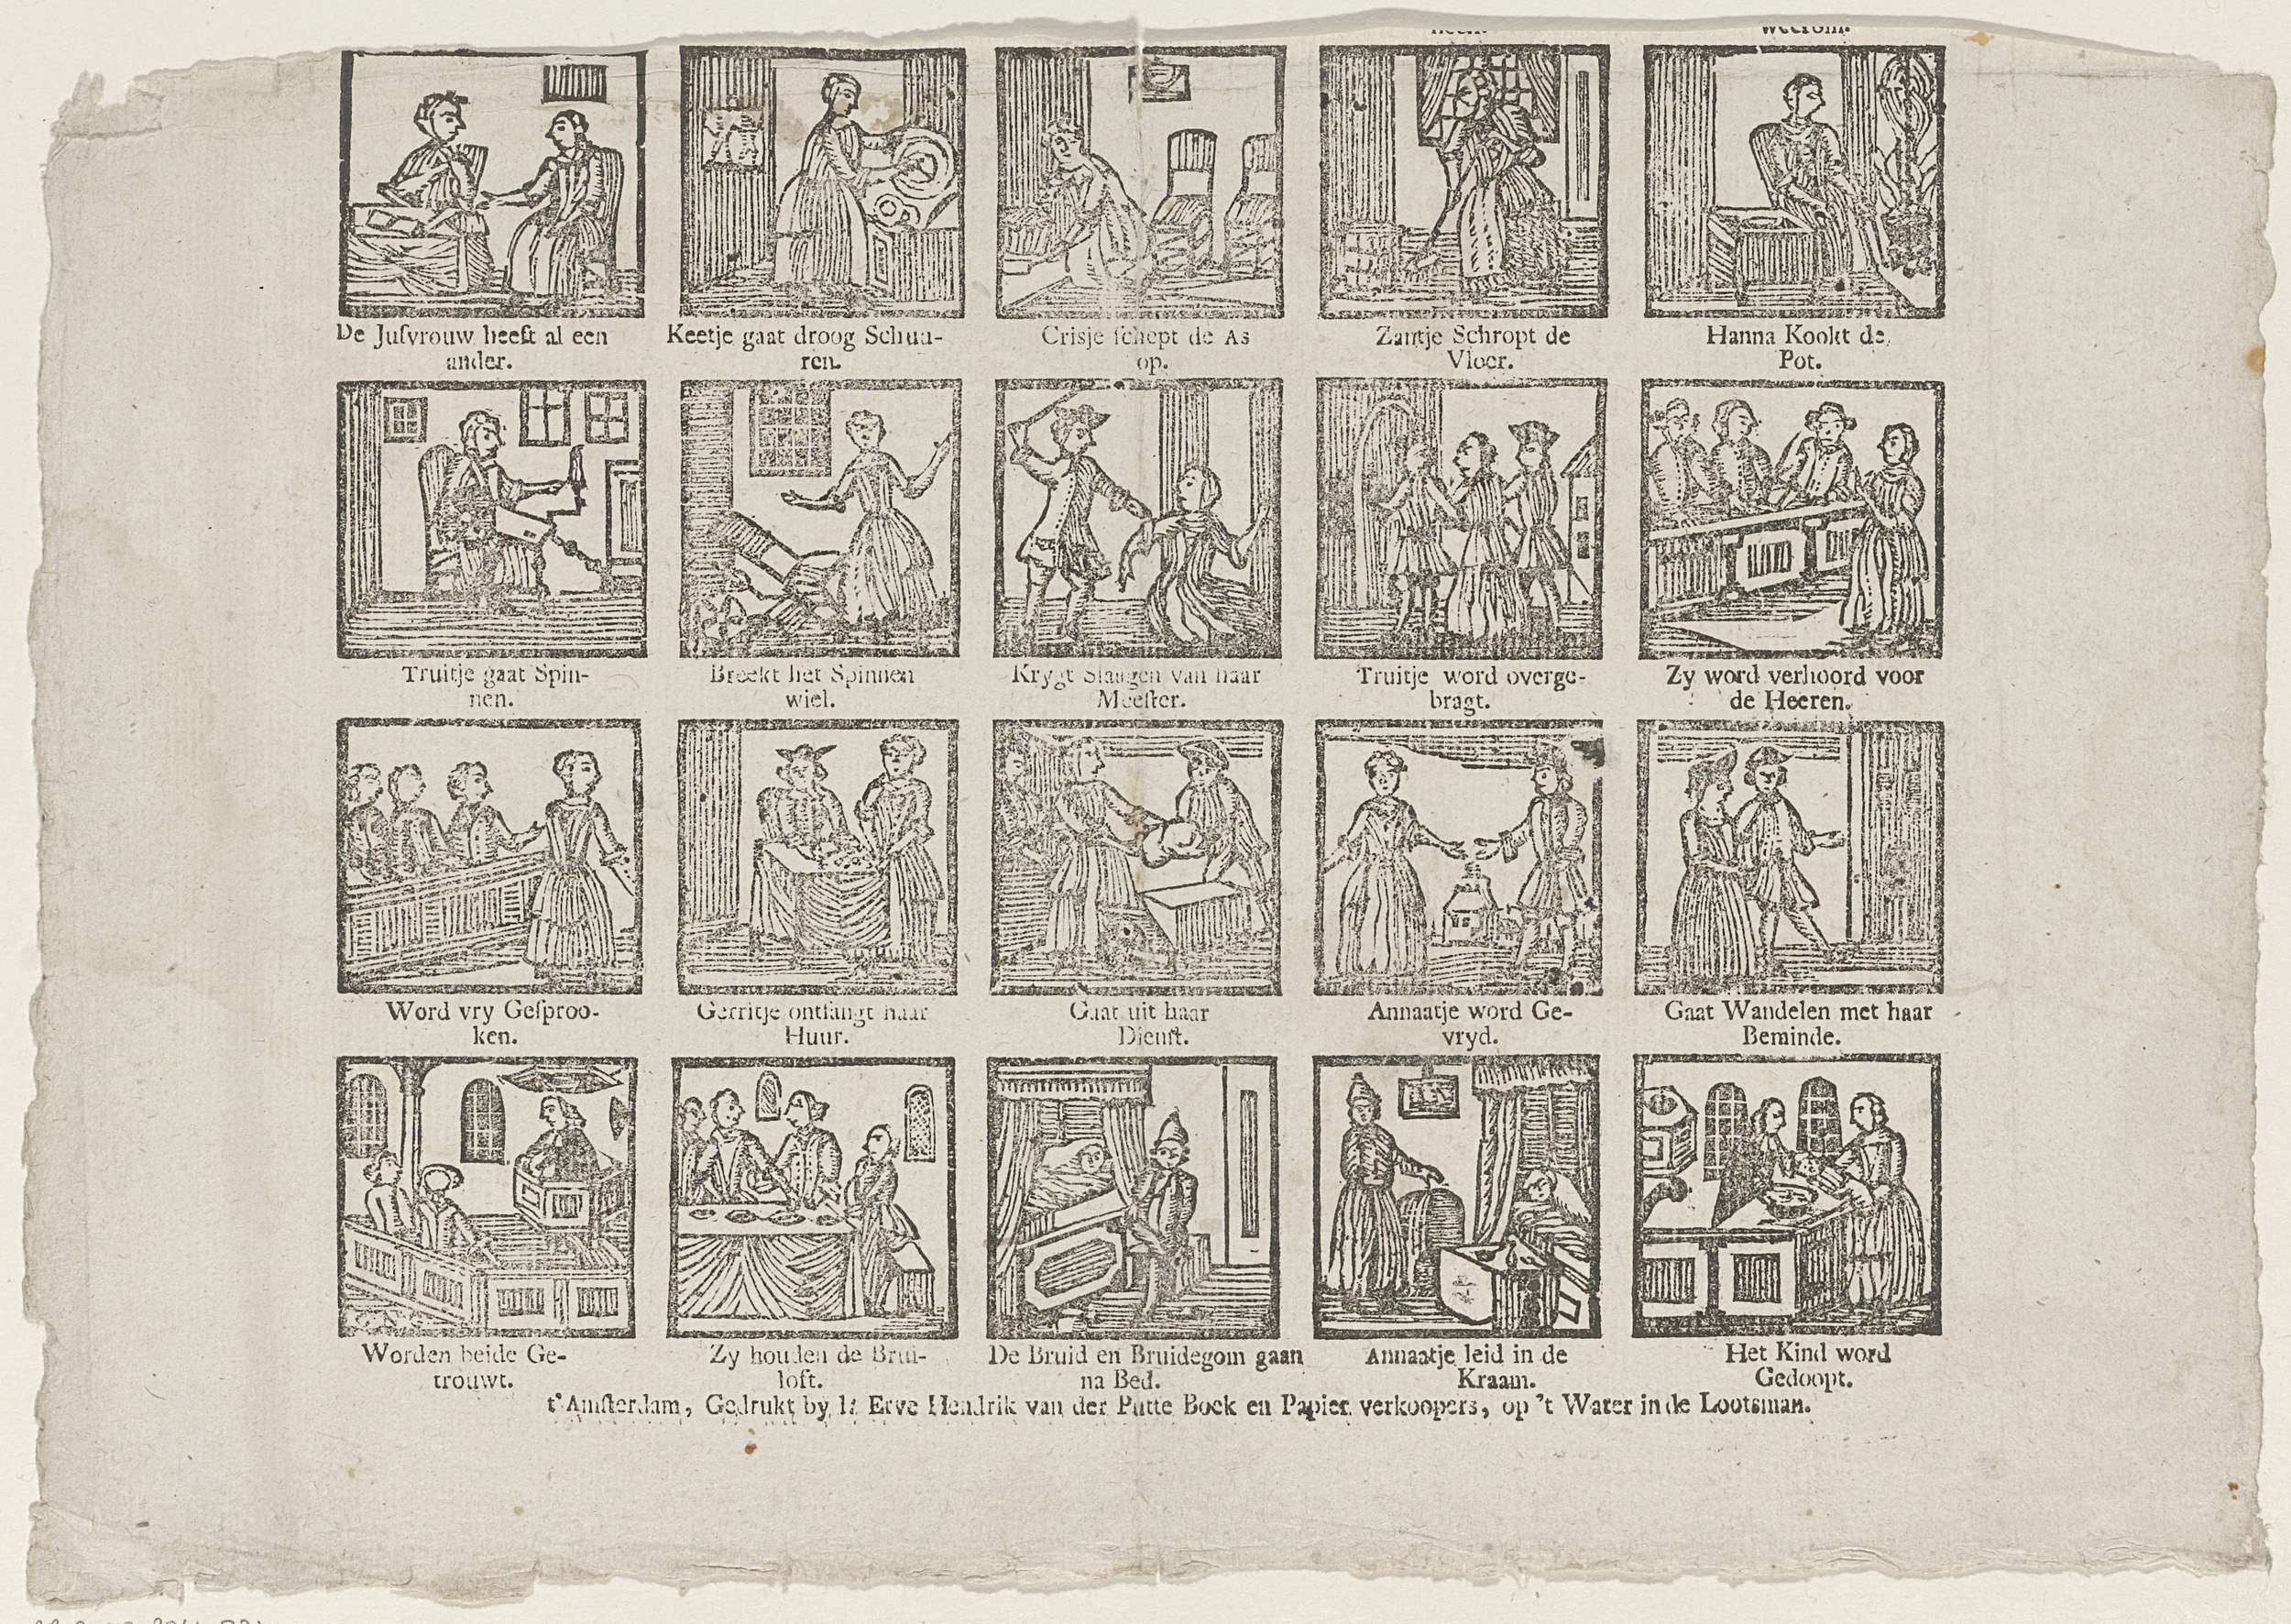 weerom.
De Jufvrouw heeft al een
ander.
Keetje gaat droog Schuu-
ren.
Crisje schept de As
op.
Zantje Schropt de
Vloer.
Hanna Kookt de
Pot.
Truitje gaat Spin-
nen.
Breekt het Spinnen
wiel.
Krygt Slaagen van haar
Meester.
Truitje word overge-
bragt.
Zy word verhoord voor
de Heeren.
Word vry Gesproo-
ken.
Gerritje ontfangt haar
Huur.
Gaat uit haar
Dienst.
Annaatje word Ge-
vryd.
Gaat Wandelen met haar
Beminde.
Worden beide Ge-
trouwt.
Zy houden de Brui-
loft.
De Bruid en Bruidegom gaan
na Bed.
Annaatje leid in de
Kraam.
Het Kind word
Gedoopt.
t'Amsterdam, Gedrukt by de Erve Hendrik van der Putte Boek en Papier verkoopers, op 't Water in de Lootsman.